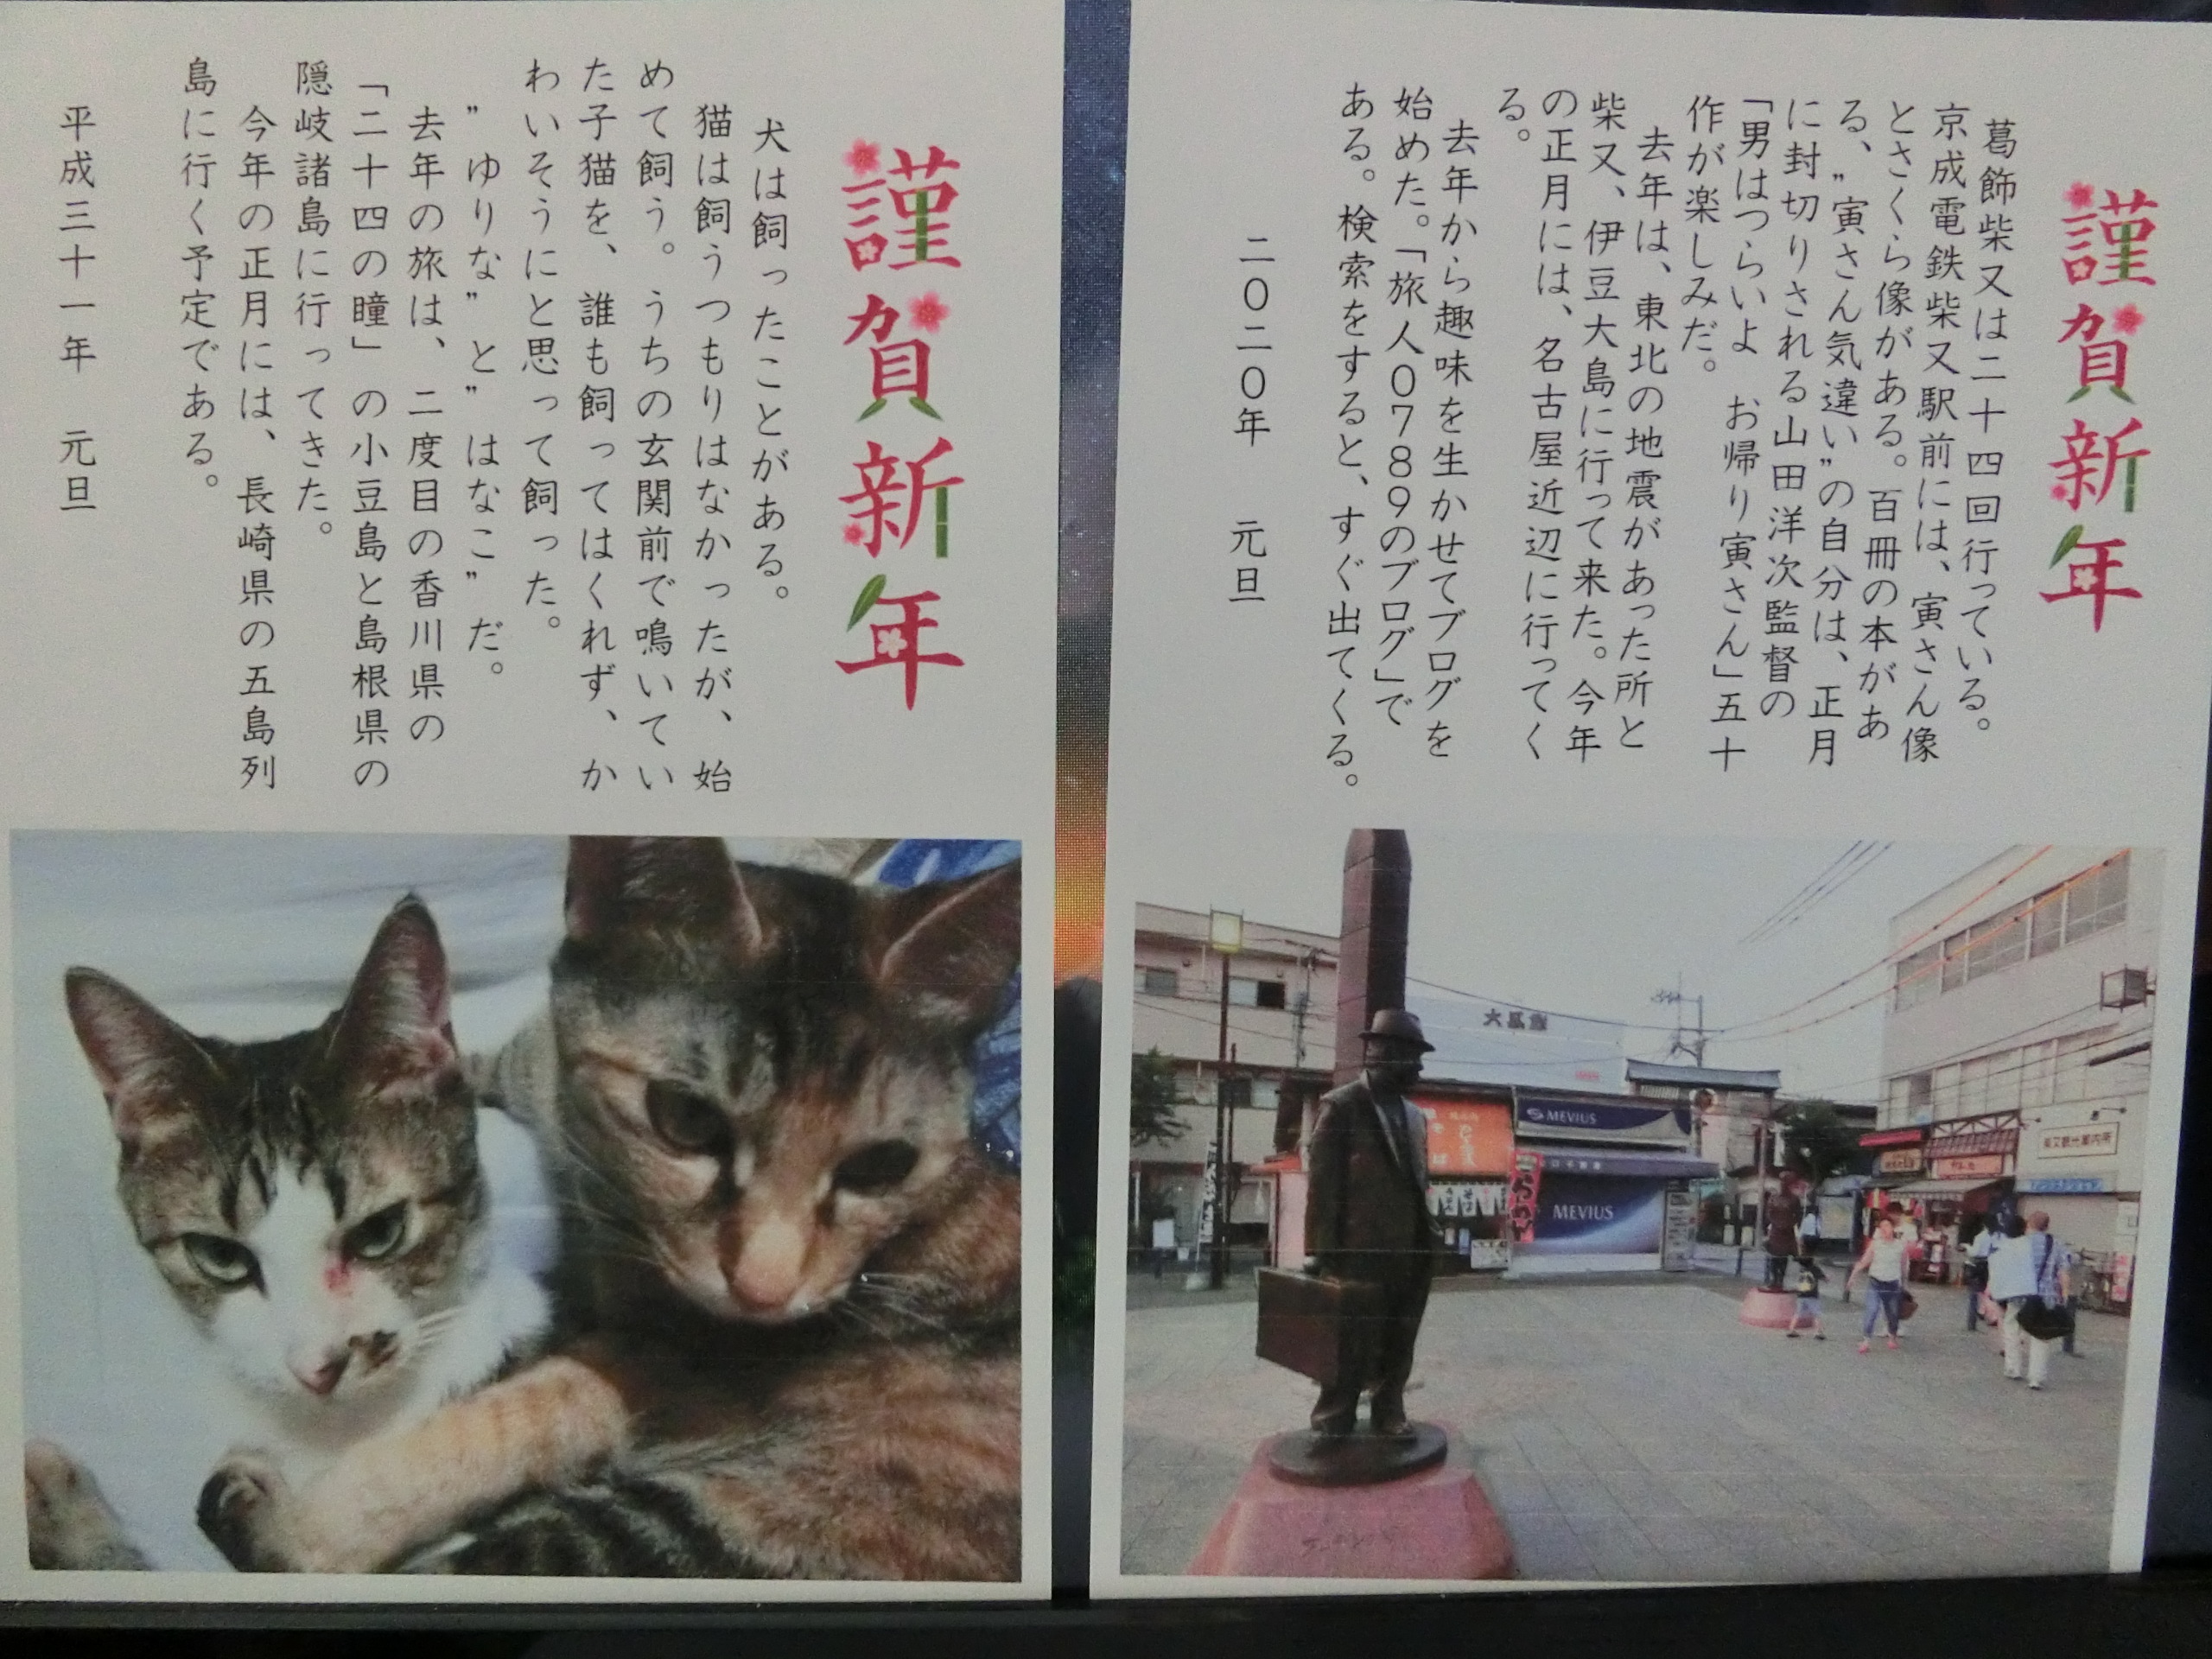 謹賀新年
葛飾柴又は二十四回行っている。
京成電鉄柴又駅前には、寅さん像
とさくら像がある。百冊の本があ
る、”寅さん気違い”の自分は、正月
に封切りされる山田洋次監督の
「男はつらいよ　お帰り寅さん」五十
作が楽しみだ。
去年は、東北の地震があった所と
柴又、伊豆大島に行って来た。今年
の正月には、名古屋近辺に行ってく
る。
去年から趣味を生かせてブログを
始めた。「旅人0789のブログ」で
ある。検索をすると、すぐ出てくる。
二〇二〇年　元旦
MEVIUS
MEVIUS
柴又観光案内所
謹賀新年
犬は飼ったことがある。
猫は飼うつもりはなかったが、始
めて飼う。うちの玄関前で鳴いてい
た子猫を、誰も飼ってはくれず、か
わいそうにと思って飼った。
”ゆりな”と”はなこ”だ。
去年の旅は、二度目の香川県の
「二十四の瞳」の小豆島と島根県の
隠岐諸島に行ってきた。
今年の正月には、長崎県の五島列
島に行く予定である。
平成三十一年　元旦